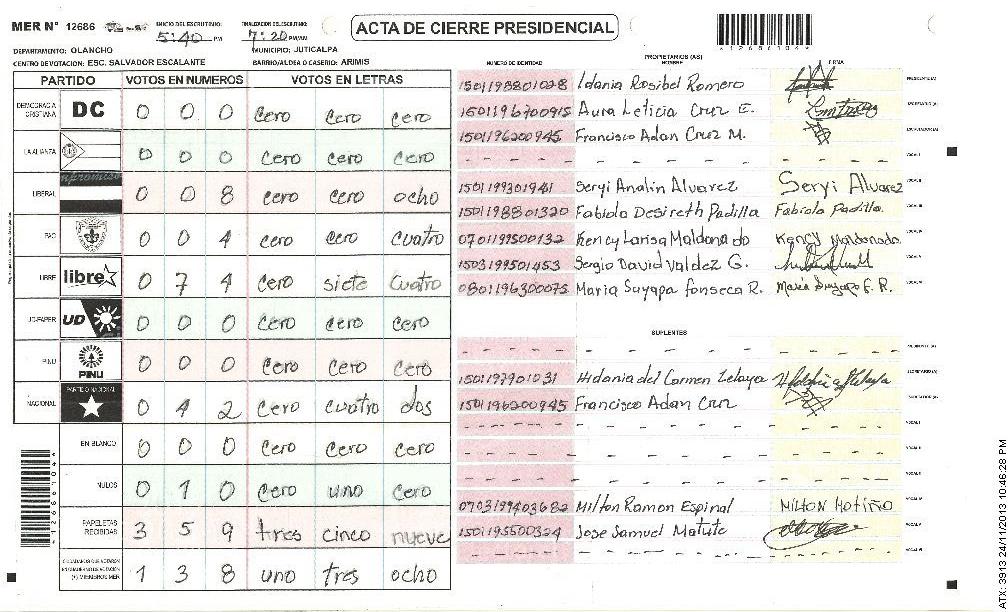 MER N° 12686 INICIO DEL ESCRUTINIO: 5:40 PM FINALIZACION DEL ESCRUTINIO: 7:20 PM/AM ACTA DE CIERRE PRESIDENCIAL
*12686104*
DEPARTAMENTO: OLANCHO MUNICIPIO: JUTICALPA
CENTRO DE VOTACION: ESC. SALVADOR ESCALANTE BARRIO/ALDEA O CASERIO: ARIMIS
PARTIDO VOTOS EN NUMEROS VOTOS EN LETRAS
DEMOCRACIA CRISTIANA DC 0 0 0 cero cero cero
LA ALIANZA 0 0 0 cero cero cero
LIBERAL 0 0 8 cero cero ocho
PAC 0 0 4 cero cero cuatro
LIBRE libre 0 7 4 cero siete cuatro
UD-FAPER UD 0 0 0 cero cero cero
PINU PINU 0 0 0 cero cero cero
NACIONAL PARTIDO NACIONAL 0 4 2 cero cuatro dos
EN BLANCO 0 0 0 cero cero cero
NULOS 0 1 0 cero uno cero
PAPELETAS RECIBIDAS 3 5 9 tres cinco nueve
CIUDADANOS QUE VOTARON EN CUADERNO DE VOTACION (+) MIEMBROS MER 1 3 8 uno tres ocho
PROPIETARIOS (AS)
NUMERO DE IDENTIDAD NOMBRE FIRMA
1501198801028 Idania Rosibel Romero PRESIDENTE (A)
1501196700915 Aura Leticia Cruz E. SECRETARIO (A)
1501196200945 Francisco Adan Cruz M. ESCRUTADOR (A)
- - - - - - VOCAL I
1501199301941 Seryi Analin Alvarez Seryi Alvarez VOCAL II
1501198801320 Fabiola Desireth Padilla Fabiola Padilla. VOCAL III
0701199500132 Kency Larisa Maldonado Kency Maldonado VOCAL IV
1503199501453 Sergio David Valdez G. VOCAL V
0801196300075 Maria Suyapa Fonseca R. Maria Suyapa F. R. VOCAL VI
SUPLENTES
- - - - - - PRESIDENTE (A)
1501197901031 Hidania del Carmen Zelaya SECRETARIO (A)
1501196200945 Francisco Adan Cruz ESCRUTADOR (A)
- - - - - - VOCAL I
- - - - - - VOCAL II
- - - - - - VOCAL III
0703199403682 Milton Ramon Espinal MILTON MOTIÑO VOCAL IV
1501195500324 Jose Samuel Matute VOCAL V
- - - - - - VOCAL VI
*12686104*
ATX: 3913 24/11/2013 10:46:28 PM